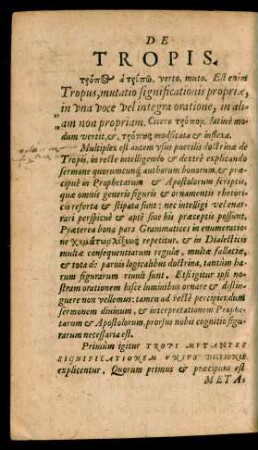 DE
TROPIS.
τρόπος à τρέπω, verto, muto. Est enim
Tropus, mutatio significationis propriæ,
in vna voce vel integra oratione, in ali-
am non propriam. Cicero τρόπον, latinè mo-
dum vertit, & τρόπος modificata & inflexa.
Multiplex est autem vsus puerilis doctrinæ de
Tropis, in rectè intelligendo & dextrè explicando
sermone quorumcunque autorum bonorum, & præ-
cipuè in Prophetarum & Apostolorum scriptis,
quæ omnis generis figuris & ornamentis rhetori-
cis referta & stipata sunt: nec intelligi vel enar-
rari perspicuè & aptè sine his præceptis possunt.
Præterea bona pars Grammatices in enumeratione
σχημάτων λέξεως repetitur, & in Dialecticis
multæ consequentiarum regulæ, multæ fallaciæ,
& tota de parologicalibus doctrina, tantùm ha-
rum figurarum riuuli sunt. Etsi igitur ipsi no-
stram orationem hisce luminibus ornare & distin-
guere non vellemus: tamen ad rectè percipiendum
sermonem diuinum, & interpretationem Prophe-
tarum & Apostolorum, prorsus nobis cognitio figu-
rarum necessaria est.
Primùm igitur TROPI MUTANTES
SIGNIFICATIONEM VNIVS DICTIONIS
explicentur, Quorum primus & præcipuus est
META-